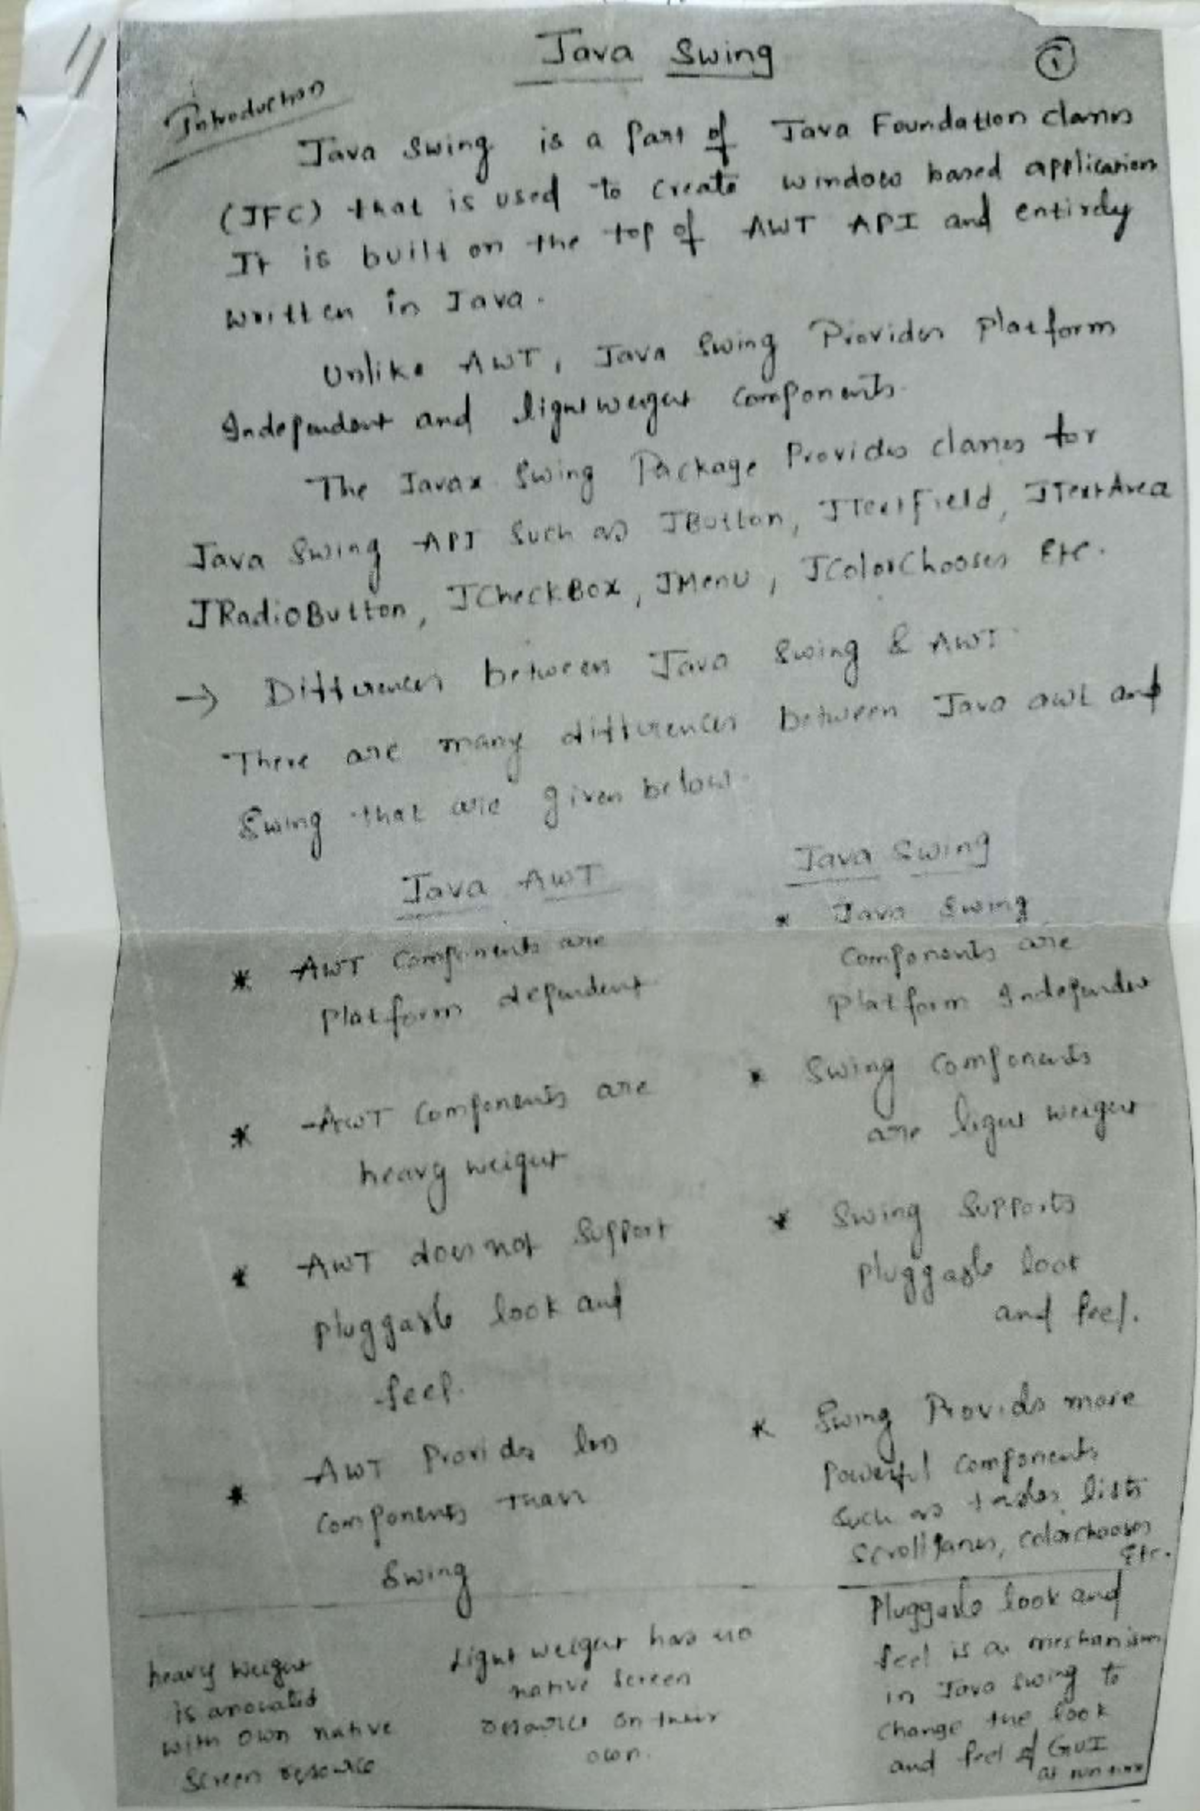 Java Swing
1
Introduction
Java Swing is a part of Java Foundation classes
(JFC) that is used to create window based applications
It is built on the top of AWT API and entirely
written in Java.
Unlike AWT, Java Swing Provides Platform
Independent and lightweight components.
The Javax Swing Package Provides classes for
Java Swing API Such as JButton, JTextField, JTextArea
JRadioButton, JCheckBox, JMenu, JColorChooser Etc.
→ Differences between Java Swing & AWT
There are many differences between Java awt and
Swing that are given below.
Java AWT
* AWT Components are
Platform dependent
* AWT Components are
heavy weight
* AWT does not Support
pluggable look and
feel.
* AWT Provides less
components than
Swing
Java Swing
* Java Swing
Components are
Platform Independent
* Swing Components
are light weight
* Swing Supports
Pluggable look
and feel.
* Swing Provides more
Powerful components
Such as tables, lists
Scrollpanes, colorchooser
Etc.
heavy weight
is associated
with own native
Screen resource
Light weight has no
native Screen
resource on their
own.
Pluggable look and
feel is a mechanism
in Java swing to
change the look
and feel of GUI
at runtime